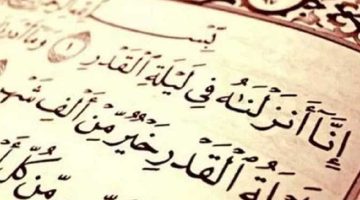 بِسْـ
إِنَّآ أَنزَلْنَٰهُ فِي لَيْلَةِ ٱلْقَدْرِ ١ وَمَآ
ـلَةُ ٱلْقَدْرِ خَيْرٌ مِّنْ أَلْفِ شَهْـ
مِّن كُلِّ أَ